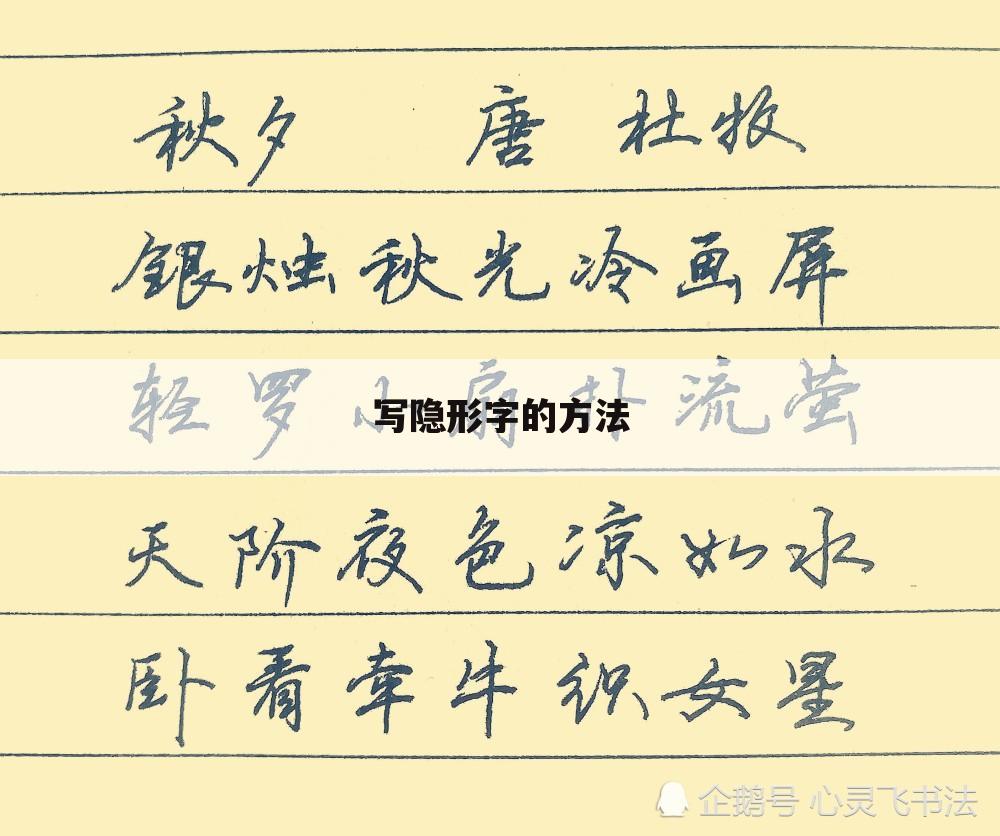 秋夕 唐 杜牧
銀烛秋光冷画屏
轻罗小扇扑流萤
写隐形字的方法
天阶夜色凉如水
卧看牵牛织女星
企鹅号 心灵飞书法